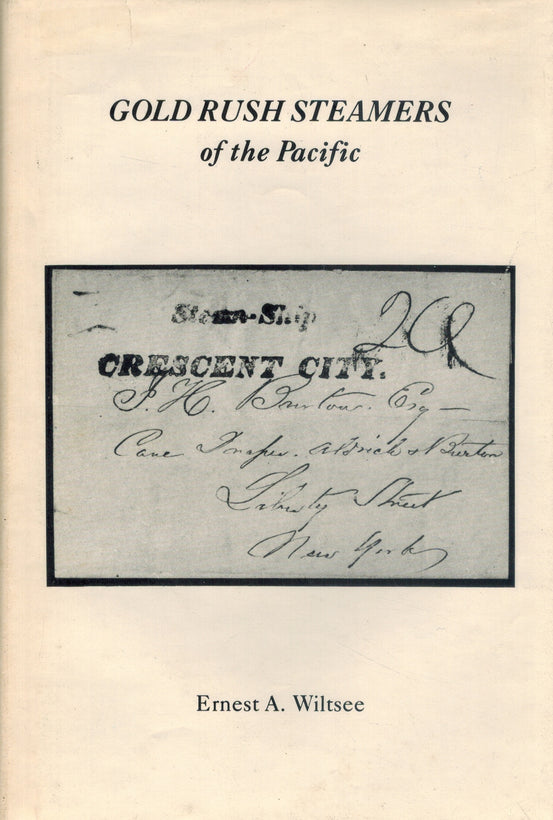 GOLD RUSH STEAMERS
of the Pacific
Steam-Ship
CRESCENT CITY.
J. H. Burton. Esq
Care Aldrich & Burton
Liberty Street
New York
Ernest A. Wiltsee